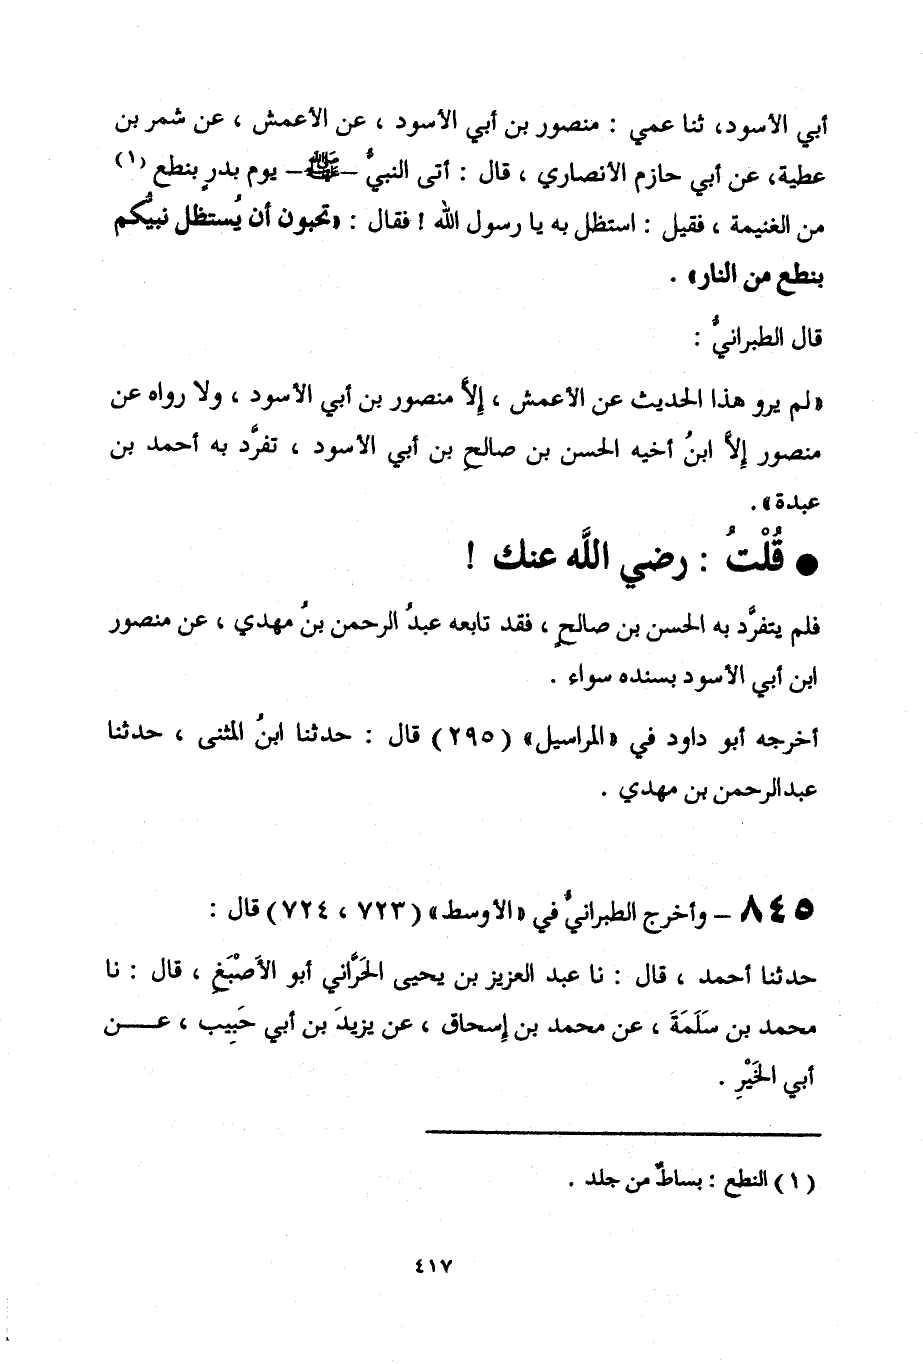 أبي الأسود، ثنا عمي : منصور بن أبي الأسود ، عن الأعمش ، عن شمر بن
عطية، عن أبي حازم الأنصاري ، قال : أتى النبيُّ –ﷺ– يوم بدرٍ بنطع (١)
من الغنيمة ، فقيل : استظل به يا رسول الله ! فقال : «تحبون أن يُستظل نبيُّكم
بنطع من النار» .
قال الطبرانيُّ :
«لم يرو هذا الحديث عن الأعمش ، إلاَّ منصور بن أبي الأسود ، ولا رواه عن
منصور إلاَّ ابنُ أخيه الحسن بن صالحِ بن أبي الأسود ، تفرَّد به أحمد بن
عبدة» .
● قُلْتُ : رضي اللَّه عنك !
فلم يتفرَّد به الحسن بن صالحٍ ، فقد تابعه عبدُ الرحمن بنُ مهدي ، عن منصور
ابن أبي الأسود بسنده سواء .
أخرجه أبو داود في «المراسيل» (٢٩٥) قال : حدثنا ابنُ المثنى ، حدثنا
عبدالرحمن بن مهدي .
٨٤٥ – وأخرج الطبرانيُّ في «الأوسط» (٧٢٣ ، ٧٢٤) قال :
حدثنا أحمد ، قال : نا عبد العزيز بن يحيى الحَرَّاني أبو الأَصْبَغِ ، قال : نا
محمد بن سَلَمَةَ ، عن محمد بن إسحاق ، عن يزيدَ بن أبي حَبِيب ، عـــن
أبي الخَيْرِ .
(١) النطع : بساطٌ من جلد .
٤١٧